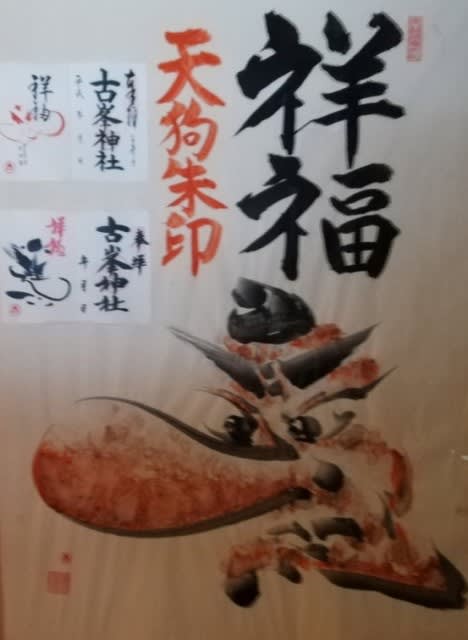 祥福
天狗朱印
奉拝
古峯神社
祥福
奉拝
古峯神社
年 月 日